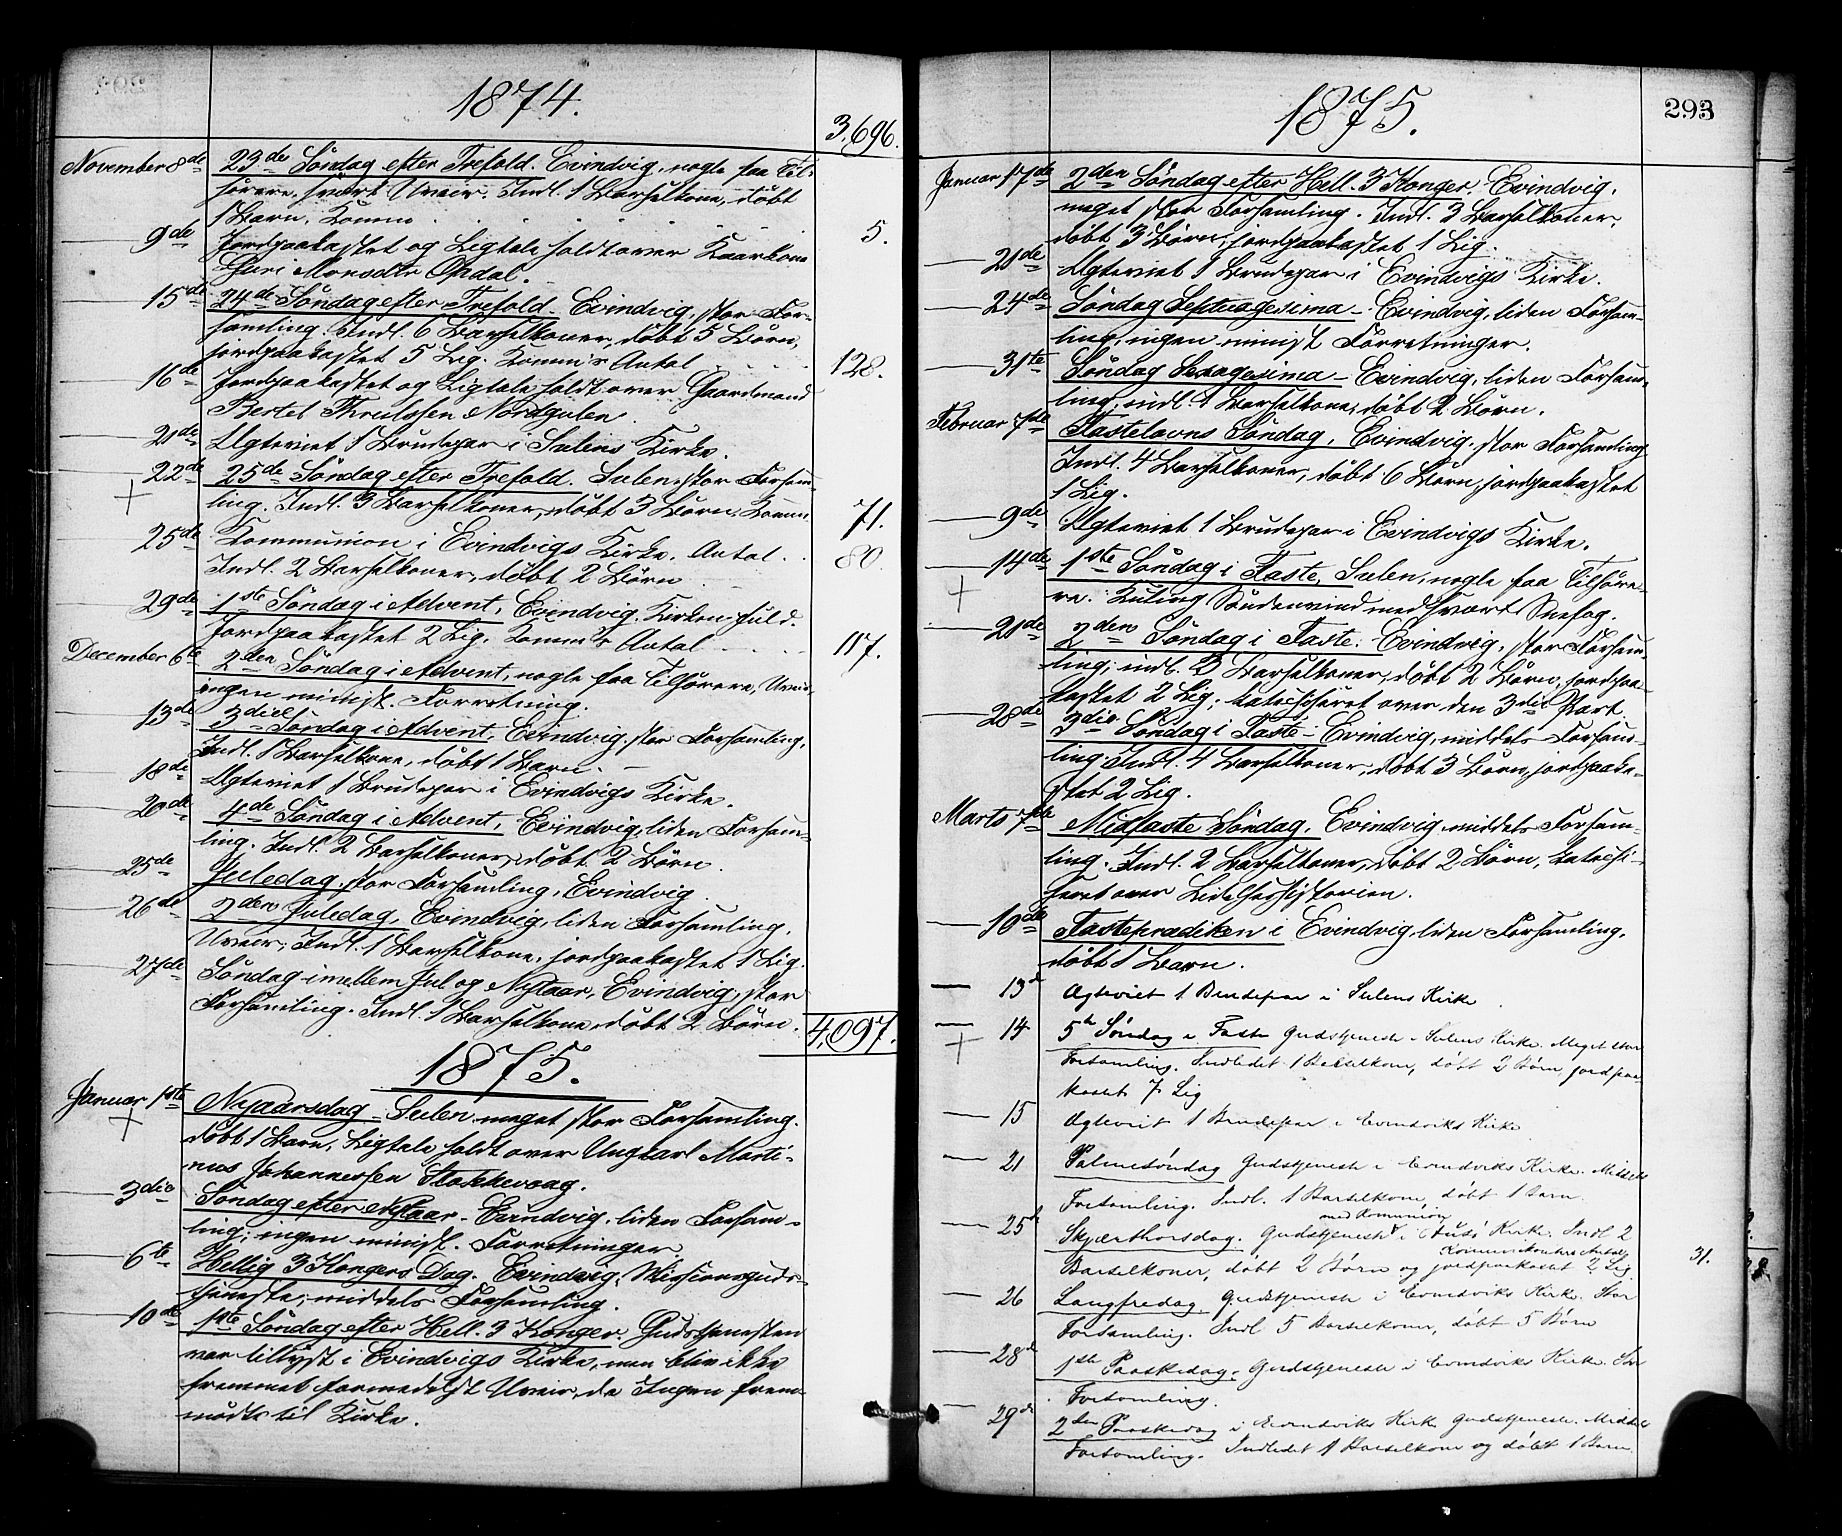 1874.
3,696.
November 8de 23de Søndag efter Trefold. Evindvig, nogle faa Til-
hørere, svært Uveir. Indl. 1 Barselkone, døbt
1 Barn; Komm. 5.
9de Jordpaakastet og Ligtale holdt over Kaarkone
Guri Monsdtr Opdal.
15de 24de Søndag efter Trefold. Evindvig, stor For-
samling. Indl. 6 Barselkoner, døbt 5 Børn,
jordpaakastet 5 Lig. Komm's Antal 128.
16de Jordpaakastet og Ligtale holdt over Gaardmand
Bertel Thrulssen Nordgulen.
21de Ægteviet 1 Brudepar i Sulens Kirke.
22de 25de Søndag efter Trefold. Sulen, stor Forsam-
+ ling. Indl. 3 Barselkoner, døbt 3 Børn. Komm. 71.
25de Kommunion i Evindvigs Kirke. Antal 80.
Indl. 2 Barselkoner, døbt 2 Børn
29de 1ste Søndag i Advent, Evindvig. Kirken fuld.
Jordpaakastet 2 Lig. Komm's Antal 117.
December 6te 2den Søndag i Advent, nogle faa Tilhørere, Uveir,
ingen minist. Forretning.
13de 3die Søndag i Advent, Evindvig, stor Forsamling,
Indl. 1 Barselkone, døbt 1 Barn.
18de Ægteviet 1 Brudepar i Evindvigs Kirke.
20de 4de Søndag i Advent, Evindvig, liden Forsam-
ling. Indl. 2 Barselkoner, døbt 2 Børn.
25de Juledag, stor Forsamling, Evindvig.
26de 2den Juledag, Evindvig, liden Forsamling.
Uveir, Indl. 1 Barselkone, jordpaakastet 1 Lig.
27de Søndag imellem Jul og Nytaar, Evindvig, stor
Forsamling. Indl. 1 Barselkone, døbt 2 Børn.
4,097.
1875.
Januar 1ste Nyaarsdag - Sulen, meget stor Forsamling.
+ døbt 1 Barn, Ligtale holdt over Ungkarl Marti-
nus Johannessen Stokkevaag.
3die Søndag efter Nytaar - Evindvig, liden Forsam-
ling; ingen minist. Forretninger.
6te Hellig 3 Kongers Dag. Evindvig, Missionsguds-
tjeneste; middels Forsamling.
10de 1ste Søndag efter Hell. 3 Konger. Gudstjenesten
var tillyst i Evindvigs Kirke, men blev ikke
fremmet formedelst Uveir, da Ingen frem-
mødte til Kirke.
1875.
293
Januar 17de 2den Søndag efter Hell. 3 Konger. Evindvig,
meget stor Forsamling. Indl. 3 Barselkoner,
døbt 3 Børn, jordpaakastet 1 Lig.
21de Ægteviet 1 Brudepar i Evindvigs Kirke.
24de Søndag Septuagesima - Evindvig, liden Forsam-
ling, ingen minist. Forretninger.
31te Søndag Sexagesima - Evindvig, liden Forsam-
ling, indl. 1 Barselkone, døbt 2 Børn.
Februar 7de Fastelavns Søndag, Evindvig, stor Forsamling.
Indl. 4 Barselkoner, døbt 6 Børn, jordpaakastet
1 Lig.
9de Ægteviet 1 Brudepar i Evindvigs Kirke.
14de 1ste Søndag i Faste, Sulen, nogle faa Tilhøre-
+ re. Kuling Søndenvind med svært Snefog.
21de 2den Søndag i Faste. Evindvig, stor Forsam-
ling; indl. 2 Barselkoner, døbt 2 Børn, jordpaa-
kastet 2 Lig; katechiseret over den 3die Part.
28de 3die Søndag i Faste - Evindvig, middels Forsam-
ling; Indl. 4 Barselkoner, døbt 3 Børn, jordpaaka-
stet 2 Lig.
Marts 7de Midfaste Søndag, Evindvig, middels Forsam-
ling. Indl. 2 Barselkoner, døbt 2 Børn, katechi-
seret over Lidelseshistorien.
10de Fasteprædiken i Evindvig, liden Forsamling.
døbt 1 Barn.
13de Ægteviet 1 Brudepar i Sulens Kirke.
14 5te Søndag i Faste Gudstjeneste i Sulens Kirke. Meget stor
+ Forsamling. Indledet 1 Barselkone, døbt 2 Børn, jordpaa-
kastet 7 Lig
15 Ægteviet 1 Brudepar i Evindviks Kirke
21 Palmesøndag Gudstjeneste i Evindviks Kirke. Middels
Forsamling. Indl. 1 Barselkone, døbt 1 Barn.
med Komunion
25de Skjærthorsdag. Gudstjeneste i Husø Kirke. Indl 2
Kommunikanters Antal
Barselkoner, døbt 2 Børn og jordpaakastet 2 Lig. 31.
26 Langfredag. Gudstjeneste i Evindviks Kirke. Stor
Forsamling. Indl 5 Barselkoner, døbt 5 Børn
28de 1ste Paaskedag. Gudstjeneste i Evindviks Kirke. Stor
Forsamling.
29de 2den Paaskedag i Evindviks Kirke Gudstjeneste. Middels
Forsamling. Indledet 1 Barselkone og døbt 1 Barn.